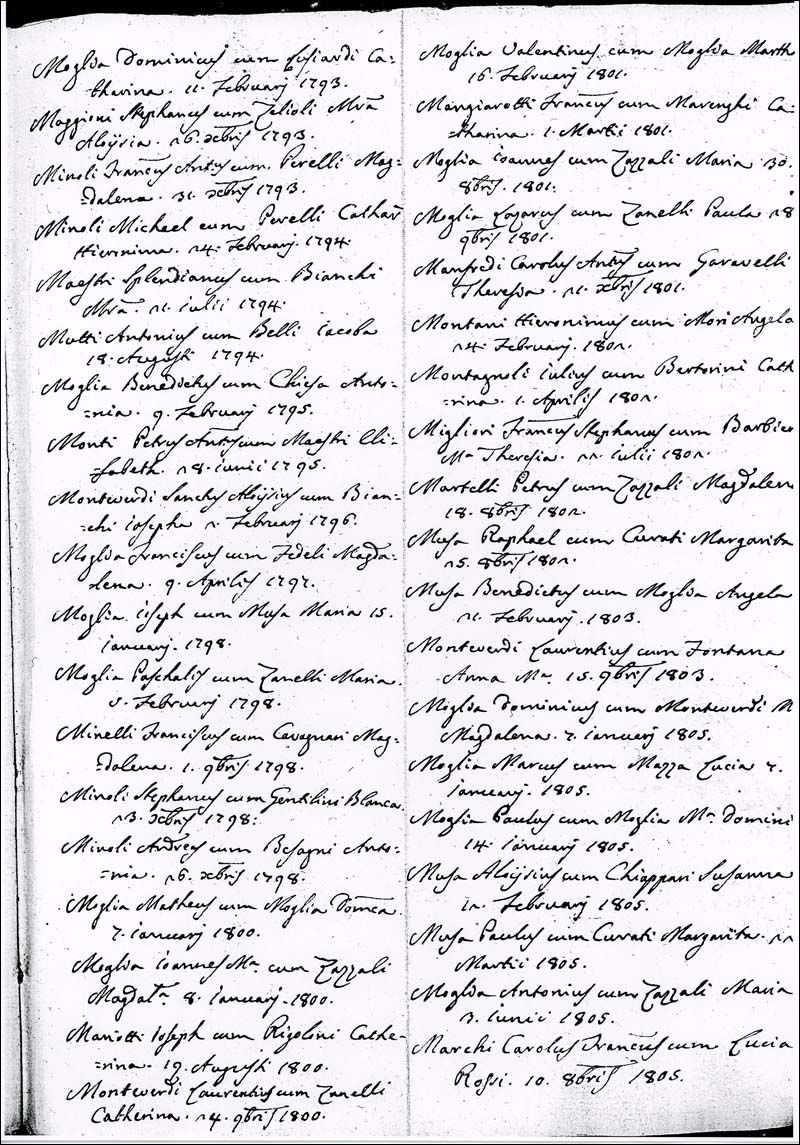 Moglia Dominicus cum Lusiardi Ca=
tharina. 11. Februarj 1793.
Maggioni Stephanus cum Zelioli Mra
Aloÿsia. 26. Xbris 1793.
Minoli Francus Antus cum Perelli Mag=
=dalena. 31. Xbris 1793.
Minoli Michael cum Perelli Cathar
Hieronima. 24. Februarj. 1794.
Maestri Splendianus cum Bianchi
Mra. 21. iulii 1794.
Mutti Antonius cum Belli iacoba
18. Augusti 1794.
Moglia Benedictus cum Chiesa Anto=
=nia. 9. Februarj 1795.
Monti Petrus Antus cum Maestri Eli=
=sabeth. 28. iunii 1795.
Monteverdi Sanctus Aloÿsius cum Bian=
=chi iosepha 2. Februarj 1796.
Moglia Franciscus cum Fedeli Magda=
=lena. 9. Aprilis 1797.
Moglia ioseph cum Musa Maria 15.
ianuarj. 1798.
Moglia Paschalis cum Zanelli Maria.
Februarj 1798.
Minelli Franciscus cum Cavagnari Mag=
=dalena. 1. 9bris 1798.
Minoli Stephanus cum Gentilini Blanca.
23. Xbris 1798.
Minoli Andreas cum Besagni Anto=
=nia. 26. Xbris 1798.
Moglia Matheus cum Moglia Domca.
7. ianuarj 1800.
Moglia ioannes Ma. cum Zazzali
Magdala. 8. ianuarj. 1800.
Mariotti ioseph cum Rigoloni Cathe=
=rina. 19. Augusti 1800.
Monteverdi Laurentius cum Zanelli
Catherina. 24. 9bris 1800.
Moglia Valentinus cum Moglia Marth
16. Februarj 1801.
Mangiarotti Francus cum Marenghi Ca=
=tharina. 1. Martii 1801.
Moglia ioannes cum Zazzali Maria 30.
8bris. 1801.
Moglia Lazarus cum Zanelli Paula 28
9bris 1801.
Manfredi Carolus Antus cum Garavelli
Theresia. 21. Xbris 1801.
Montani Hieronimus cum Mori Angela
24. Februarj. 1802.
Montagnoli iulius cum Bertorini Cath
=rina. 1. Aprilis 1802.
Migliori Francus Stephanus cum Barbier
Ma Theresia. 22. iulii 1802.
Martelli Petrus cum Zazzali Magdalen
18. 8bris 1802.
Musa Raphael cum Curati Margarita
25. 8bris 1802.
Musa Benedictus cum Moglia Angela
21. Februarj. 1803.
Monteverdi Laurentius cum Fontana
Anna Ma. 15. 9bris 1803.
Moglia Dominicus cum Monteverdi M
Magdalena. 7. ianuarj 1805.
Moglia Marcus cum Mazza Lucia 7.
ianuarj. 1805.
Moglia Paulus cum Moglia Ma. Domini
14. ianuarj 1805.
Musa Aloÿsius cum Chiappari Susanna
12. Februarj 1805.
Musa Paulus cum Curati Margarita. 22
Martii 1805.
Moglia Antonius cum Zazzali Maria
3. iunii 1805.
Marchi Carolus Francus cum Lucia
Rossi. 10. 8bris 1805.